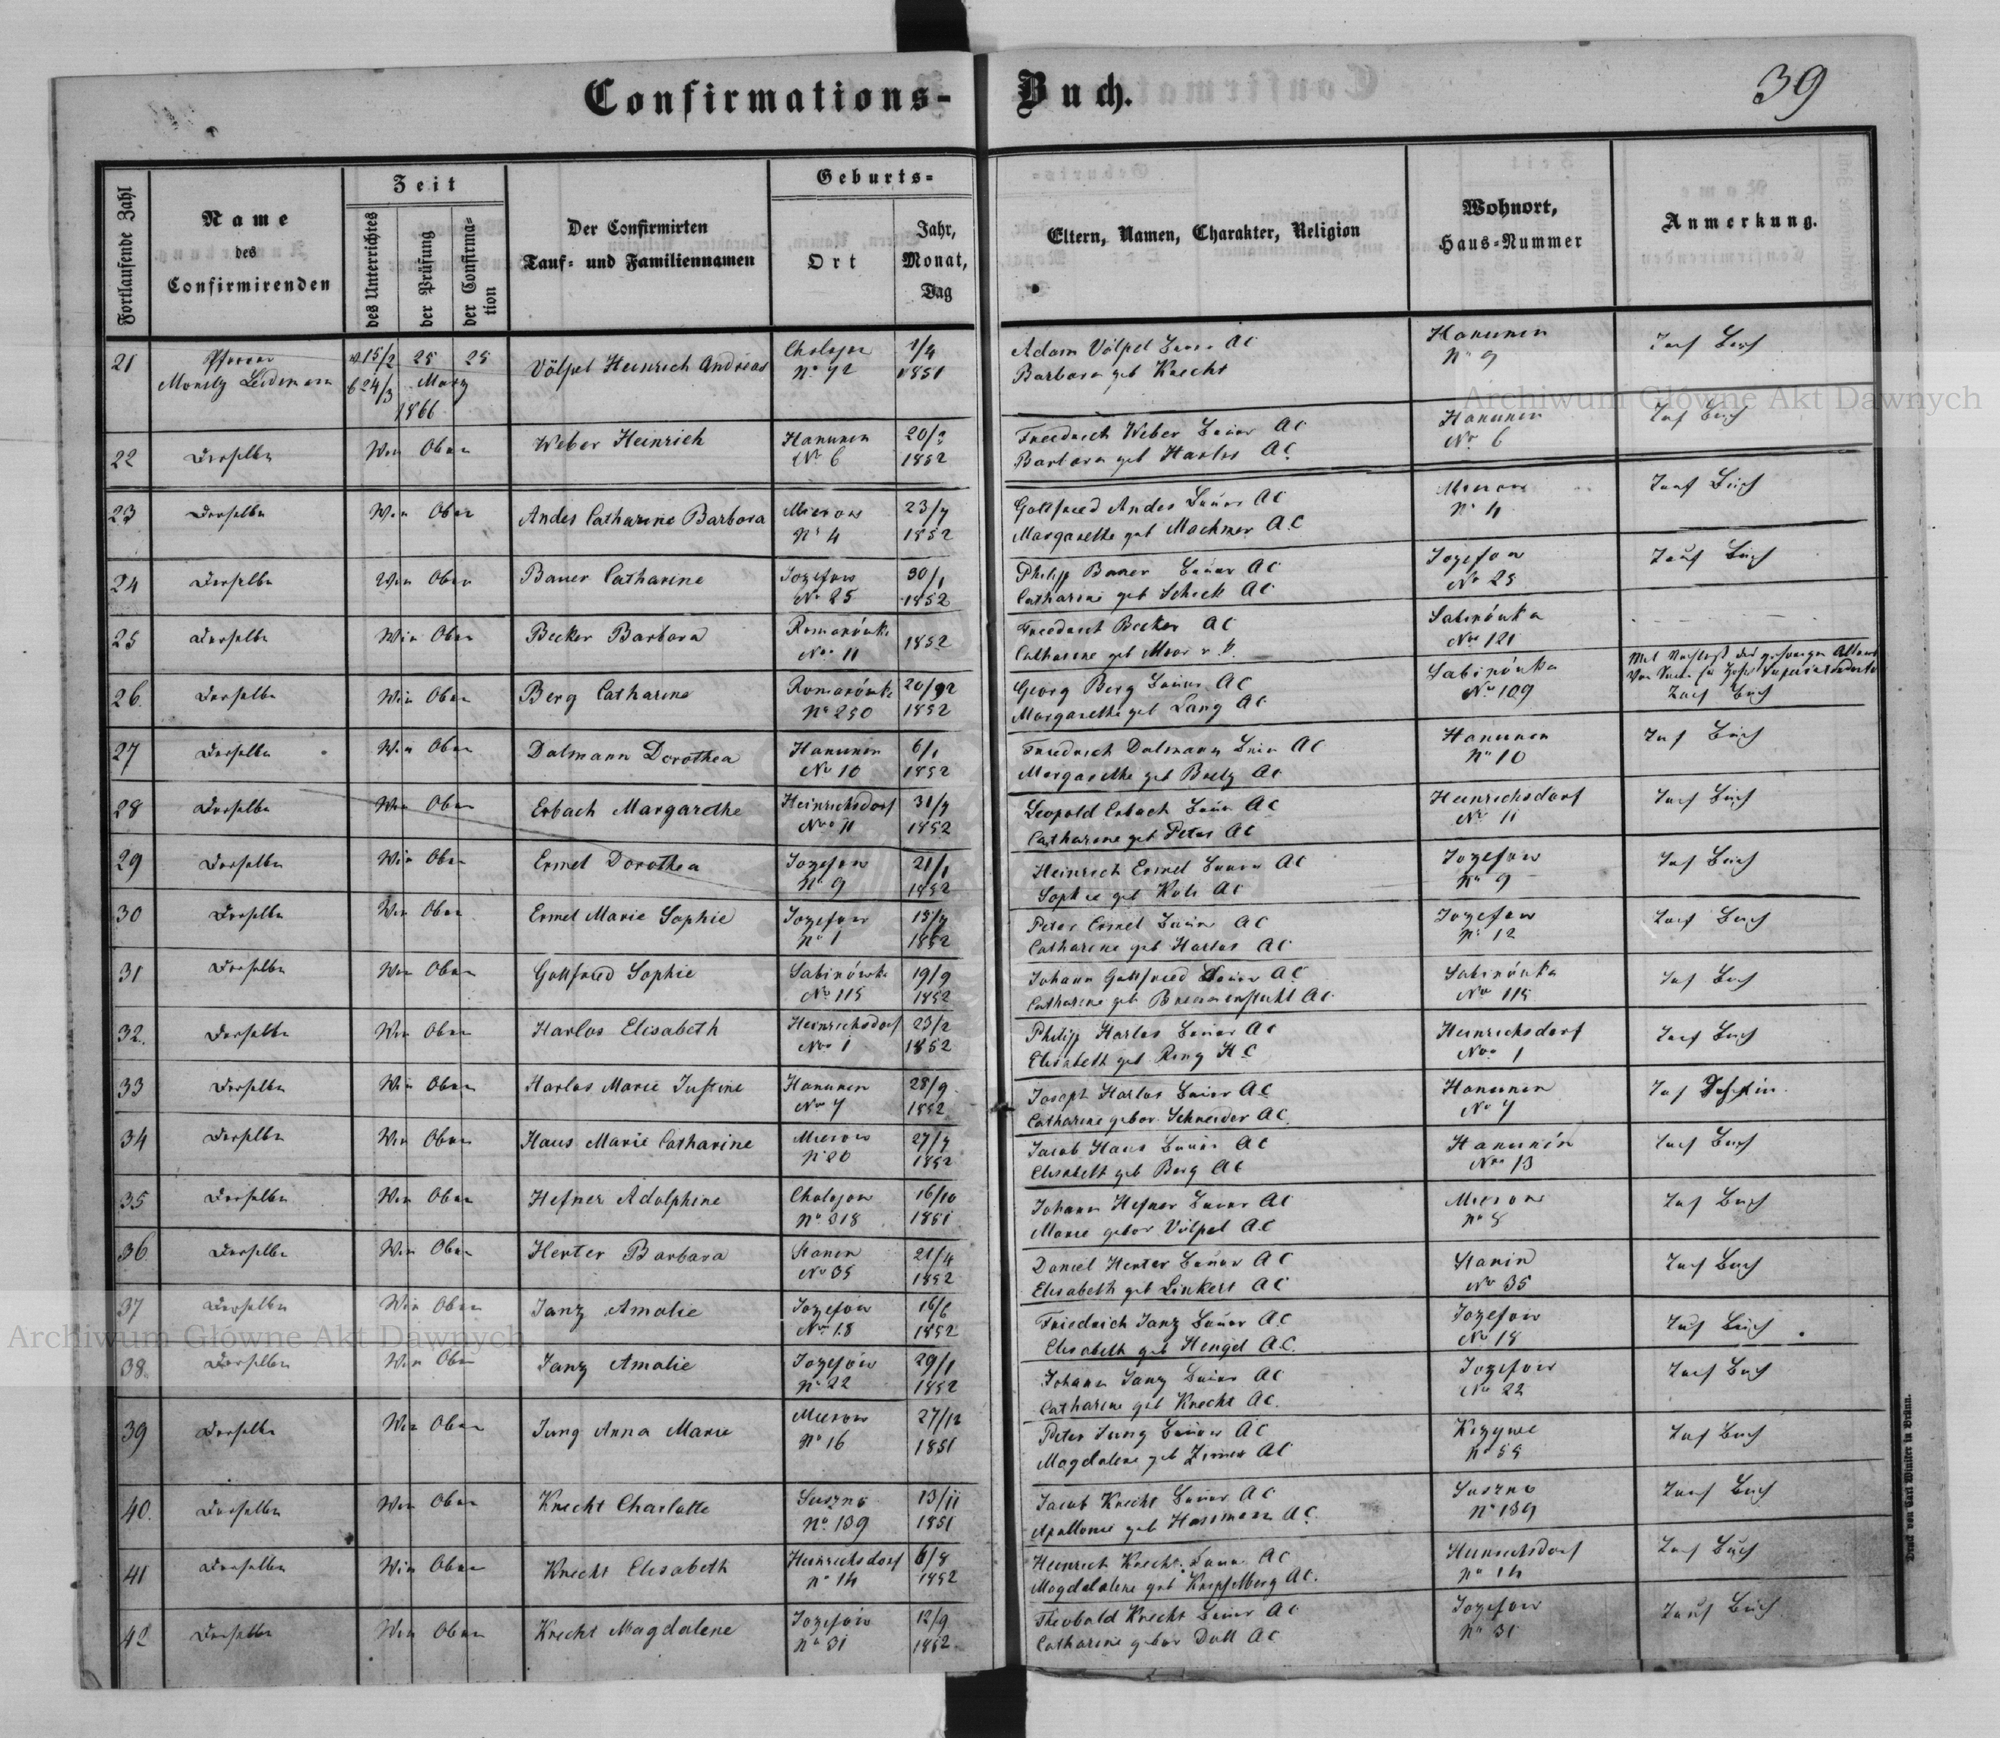 Confirmations-Buch.
39
Fortlaufende Zahl
Name
des
Confirmirenden
Zeit
des Unterrichtes
der Prüfung
der Confirma-
tion
Der Confirmirten
Tauf- und Familiennamen
Geburts-
Ort
Jahr,
Monat,
Tag
Eltern, Namen, Charakter, Religion
Wohnort,
Haus-Nummer
Anmerkung.
21 Pfarrer 15/2 25 25 Völpel Heinrich Andreas 1/4 Adam Völpel AC Hanunin
24/3 März No 72 1851 Barbara geb Knecht No 9
1866
22 Derselbe Wie Oben Weber Heinrich Hanunin 20/ Friedrich Weber Bauer AC Hanunin Buch
No 6 1852 Barbara geb Harlos AC No 6
23 Derselbe Wie Oben Andes Catharine Barbara Mierow 23/7 Gottfried Andes Bauer AC Mierow Buch
No 4 1852 Margarethe geb Mochmer AC No 4
24 Derselbe Wie Oben Bauer Catharine Jozefow 30/1 Philipp Bauer Bauer AC Jozefow Buch
No 25 1852 Catharine geb Scheck AC No 25
25 Derselbe Wie Oben Becker Barbara Romanówka 1852 Friedrich Becker AC Sabinówka
No 11 Catharine geb No 121
26. Derselbe Wie Oben Berg Catharine Romanówka Georg Berg Bauer AC Sabinówka
No 250 1852 Margarethe geb Lang AC No 109 Buch
27 Derselbe Wie Oben Dalmann Dorothea Hanunin 6/1 Friedrich Dalmann AC Hanunin Buch
No 10 1852 Margarethe geb Bretz AC No 10
28 Derselbe Wie Oben Erbach Margarethe Heinrichsdorf 31/7 Leopold Erbach Bauer AC Heinrichsdorf Buch
No 11 1852 Catharine geb Peter AC No 11
29 Derselbe Wie Oben Ermel Dorothea Jozefow 21/1 Heinrich Ermel Bauer AC Jozefow Buch
No 9 1852 Sophie geb AC No 9
30 Derselbe Wie Oben Ermel Marie Sophie Jozefow 15/7 Peter Ermel Bauer AC Jozefow Buch
No 1 1852 Catharine geb Harlos AC No 12
31 Derselbe Wie Oben Gottfried Sophie Sabinówka 19/9 Johann Gottfried Bauer AC Sabinówka Buch
No 115 1852 Catharine geb AC No 115
32. Derselbe Wie Oben Harlos Elisabeth Heinrichsdorf 23/2 Philipp Harlos Bauer AC Heinrichsdorf Buch
No 1 1852 Elisabeth geb Ring HC No 1
33 Derselbe Wie Oben Harlos Marie Justine Hanunin 28/9 Joseph Harlos Bauer AC Hanunin
No 7 1852 Catharine gebor Schneider AC No 7
34 Derselbe Wie Oben Haus Marie Catharine Mierow 27/7 Jacob Haus Bauer AC Hanunin Buch
No 20 1852 Elisabeth geb Berg AC No 13
35 Derselbe Wie Oben Hefner Adolphine Cholojow 16/10 Johann Hefner Bauer AC Mierow Buch
No 318 1851 Marie gebor Völpel AC No 8
36. Derselbe Wie Oben Herter Barbara Stanin 21/4 Daniel Herter Bauer AC Stanin Buch
No 35 1852 Elisabeth geb Linkert AC No 35
37 Derselbe Wie Oben Janz Amalie Jozefow 16/6 Friedrich Janz Bauer AC Jozefow Buch
No 18 1852 Elisabeth geb Hengel AC. No 18
38. Derselbe Wie Oben Janz Amalie Jozefow 29/1 Johann Janz Bauer AC Jozefow Buch
No 22 1852 Catharine geb Knecht AC. No 22
39 Derselbe Wie Oben Jung Anna Marie Mierow 27/12 Peter Jung Bauer AC Krzywe Buch
No 16 1851 Magdalene geb Zimer AC No 55
40. Derselbe Wie Oben Knecht Charlotte Suszno 13/11 Jacob Knecht Bauer AC Suszno Buch
No 139 1851 Apollonie geb AC No 139
41 Derselbe Wie Oben Knecht Elisabeth Heinrichsdorf 6/8 Heinrich Knecht Bauer AC Heinrichsdorf Buch
No 14 1852 Magdalene geb Knipfelberg AC. No 14
42 Derselbe Wie Oben Knecht Magdalene Jozefow 12/9 Theobald Knecht Bauer AC Jozefow Buch
No 31 1852 Catharine gebor Doll AC No 31
Druck von Carl Winiker in Brünn.
Archiwum Główne Akt Dawnych
Archiwum Główne Akt Dawnych